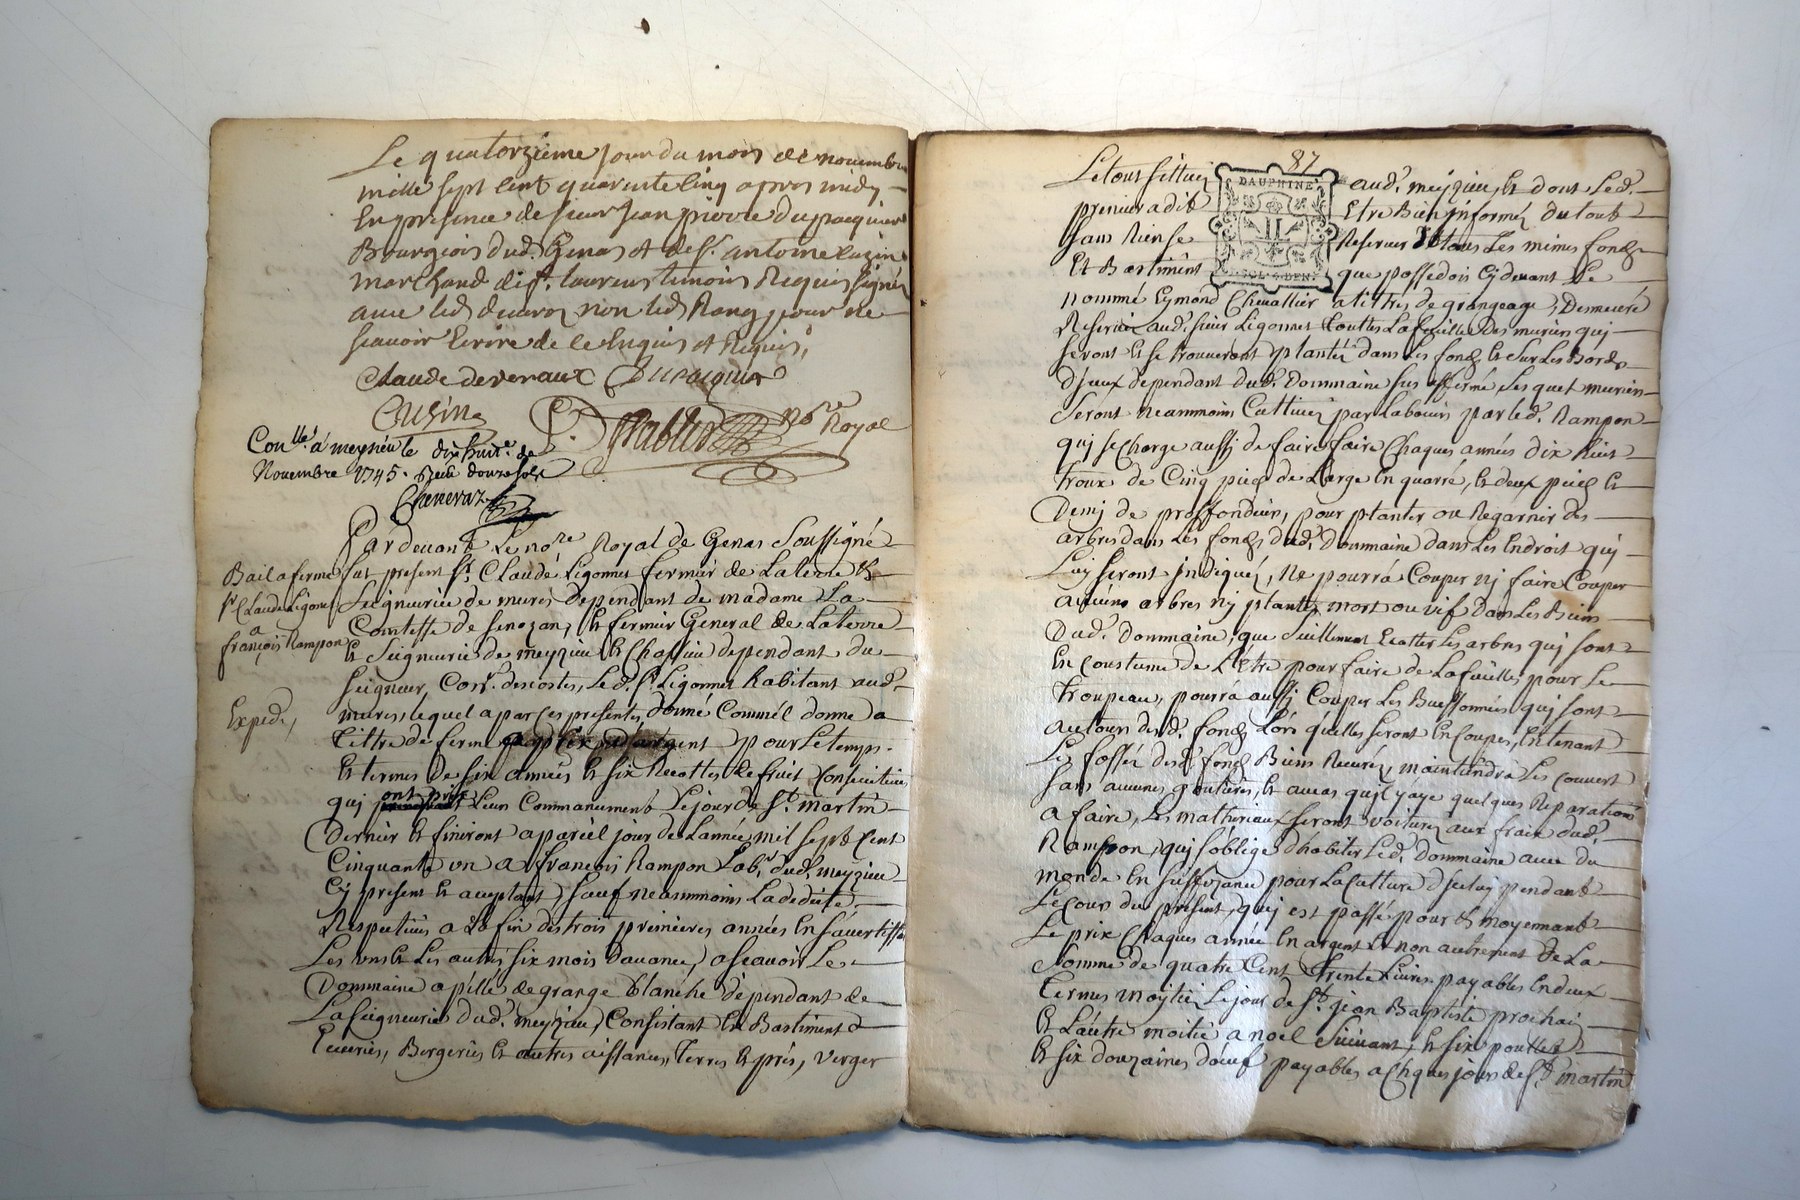 Le quatorzieme jour du mois de novembre
mille sept cent quarente cinq apres midy
En presence de sieur jean pierre dupacquier
Bourgeois dud. Genas et de sr. antoine cuzin
marchand dist. laurens temoins Requis signés
avec led devenoz non led Rang pour ne
scavoir Ecrire de ce Enquis et Requis,
Claude devenaux Dupacquier
Cusin Nore Royal
Conllé. a meyzieu le dix huite. de
Novembre 1745. Receu douze sols
Chenevaz
Pardevant Le nore. Royal de Genas Soussigné
Bail a ferme
sr Claude Ligonnet
a
françois Rampon
Expedé,
fut present sr. Claude Ligonnet fermier de La terre et
Seigneurie de mures dependant de madame La
Comtesse de Senozan, et fermier General de La terre
et Seigneurie de meyzieu et Chassieu dependant du
seigneur, descostes, Led. sr. Ligonnet habitant aud.
mures, lequel a par ces presentes, donné Comme il donne a
tiltre de ferme a prix d'argent pour Le temps
et termes de six années et six Recoltes de fruit Consecutives
qui ont pris Leur Commancement Le jour de St. martin
Dernier et finiront a pareil jour de Lannée mil sept Cent
Cinquante un a françois Rampon Labr. dud. meyzieu
Cy present et acceptant, sauf neammoins La deditte
Respective a La fin des trois premieres années En S'avertissant
Les uns et Les autres six mois d'avance, ascavoir Le
Dommaine apellé de grange blanche dependant de
La Seigneurie dud. meyzieu, Consistant En Bastiment
Ecuries, Bergeries et autres aissances, Terres et prés, verger
87
Le tout scittué aud. meyzieu, et dont Led.
preneur a dit Etre Bien informé du tout
sans Rien se Reserver et tous Les mêmes fonds
Et Bastiment que possedois cy devant Le
DAUPHINÉ
II
SOLS 4 DEN
nommé Eymond Chevallier a titres de grangeage, Demeure
Reservé aud. sieur Ligonnet touttes La feuille des muriers qui
seront et se trouveront plantés dans Les fonds et sur Les Bords
d'jceux dependant dud. Dommaine sus affermé, Lesquel muriers
Seront neammoins Cultivés par Labours par led. Rampon
qui se charge aussy de faire faire Chaques années dix huit
troux de Cinq pieds de Large En quarré, et deux pieds et
Demj de proffondeur, pour planter ou Regarnir des
arbres dans Les fonds dud. dommaine dans Les Endroit qui
Luy seront jndiqués, Ne pourra Couper nj faire Couper
aucuns arbres nj plantes mort ou vif dans Les Biens
Dud. dommaine, que seullement les arbres qui sont
En coustume de L'Etre pour faire de La feuilles pour Le
troupeau, pourra aussy Couper Les Buissonnées qui sont
autour dud. fonds Lors qu'elles seront En coupes, En tenant
Les fossés desd. fonds Biens Recurés, maintiendra Les couvert
sans aucunes goutieres, et aucas qu'il y aye quelques Reparations
a faire, Les matheriaux seront voiturés aux frais dud.
Rampon, qui s'oblige d'habiter Led. dommaine avec du
monde En suffizance pour La Culture d'jceluy pendant
Le cours du present, qui est passé pour et moyennant
Le prix Chaques année En argent et non autrement de La
Somme de quatre Cent trente Livres payables En deux
termes moitié Le jour de St. jean Baptiste prochai
et L'autre moitié a noel suivant et six poullets
et six douzaines d'œuf payables a chques jours de St. martin